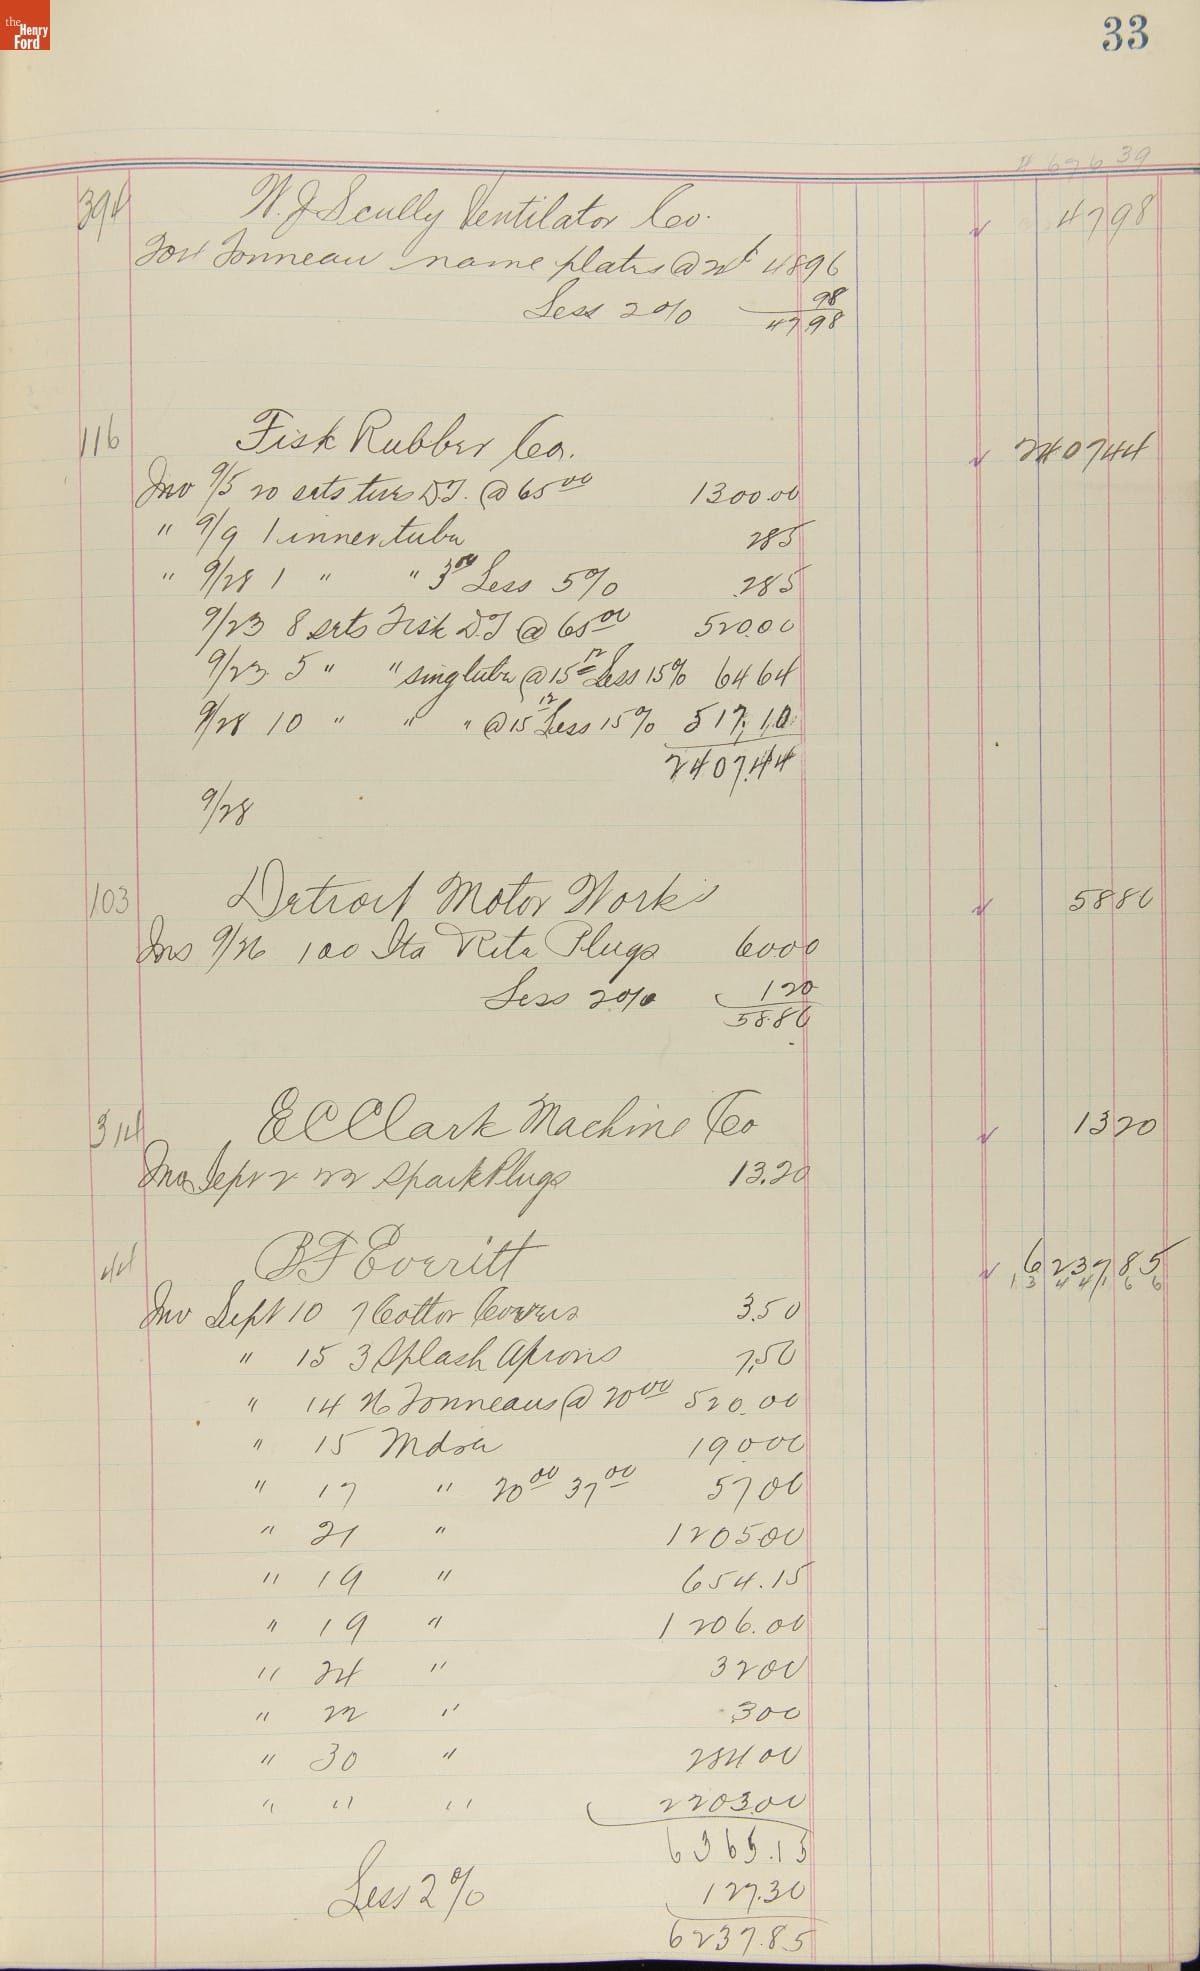 the Henry Ford
33
# 676 39
394 W. J Scully Ventilator Co. 4798
204 Tonneau name plates @ 24¢ 4896
Less 2% 98
4798
116 Fisk Rubber Co. 240744
Inv 9/5 20 sets tires D.T. @ 65 00 1300.00
" 9/9 1 inner tube 285
" 9/28 1 " " 3 00 Less 5% 285
9/23 8 sets Fisk D.T @ 65 00 520.00
9/23 5 " " sing tube @ 15 Less 15% 6464
9/28 10 " " " @ 15 Less 15% 517.10
2407.44
9/28
103 Detroit Motor Works 5880
Inv 9/26 100 Sta Rite Plugs 6000
Less 2% 120
58.80
314 E C Clark Machine Co 1320
Inv Sept 2 22 Spark Plugs 13.20
44 B F Everitt 623785
Inv Sept 10 7 Cotton Covers 3.50
" 15 3 Splash Aprons 7.50
" 14 26 Tonneaus @ 20 00 520.00
" 15 Mdse 19000
" 17 " 20 00 37 00 5700
" 21 " 120500
" 19 " 654.15
" 19 " 1206.00
" 24 " 3200
" 22 " 300
" 30 " 28400
" " " 220300
6365.15
Less 2% 127.30
6237.85